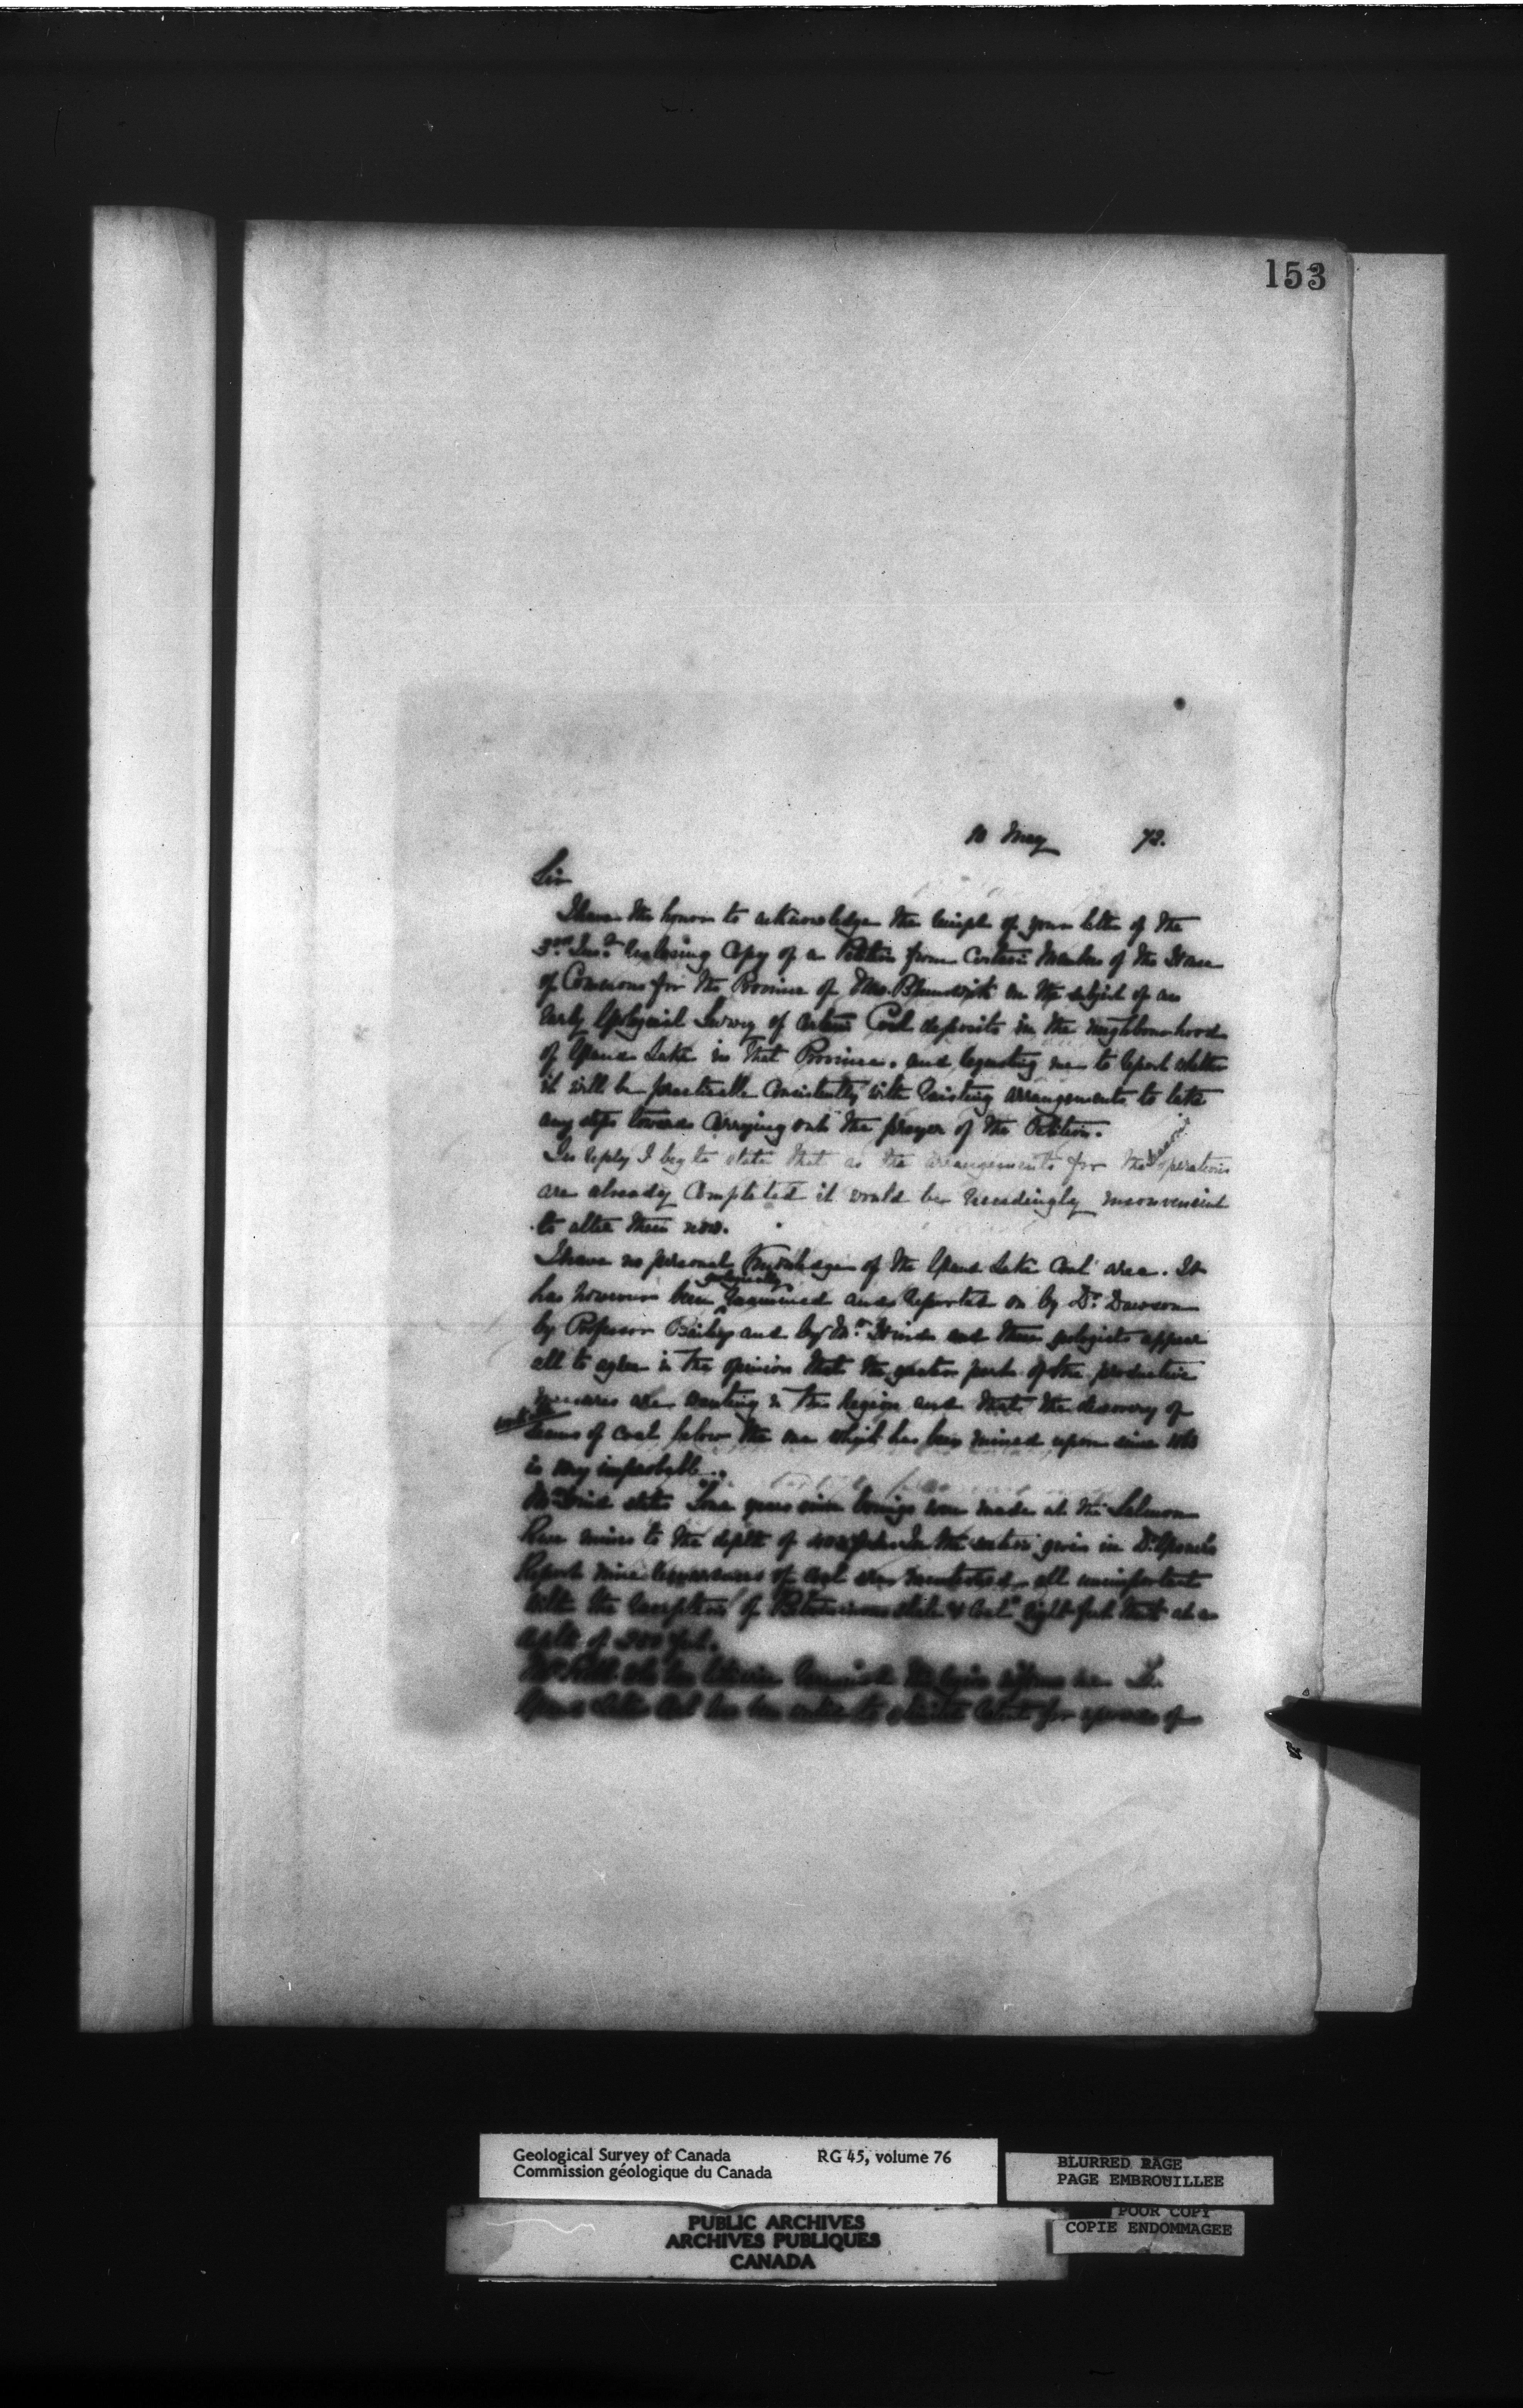 153
10 May 72.
Sir
I have the honor to acknowledge the receipt of your letter of the
3rd Inst. enclosing Copy of a Petition from Certain Members of the House
of Commons for the Province of New Brunswick on the subject of an
early Geological Survey of certain Coal deposits in the neighbourhood
of Grand Lake in that Province, and requesting me to report whether
it will be practicable consistently with existing arrangements to take
any steps towards Carrying out the prayer of the Petition.
In reply I beg to state that as the arrangements for the operations
are already Completed it would be exceedingly inconvenient
to alter them now.
I have no personal knowledge of the Grand Lake Coal area. It
has however been geologically examined and reported on by Dr. Dawson
by Professor Bailey and by Mr. Hind and these geologists appear
all to agree in the opinion that the greater part of the productive
measures are wanting in this region and that the discovery of
seams of coal below the one which has been mined upon since
is very improbable.
Mr Hind states Some years since borings were made at the Salmon
River mines to the depth of 400 feet. In the section given in Dr. Gesner's
Report nine occurrences of coal are mentioned all unimportant
with the exception of Bituminous shale & Coal" eight feet thick at a
depth of feet.
Mr.
Grand Lake Coal has been
Geological Survey of Canada RG 45, volume 76
Commission géologique du Canada
BLURRED PAGE
PAGE EMBROUILLEE
POOR COPY
COPIE ENDOMMAGEE
PUBLIC ARCHIVES
ARCHIVES PUBLIQUES
CANADA